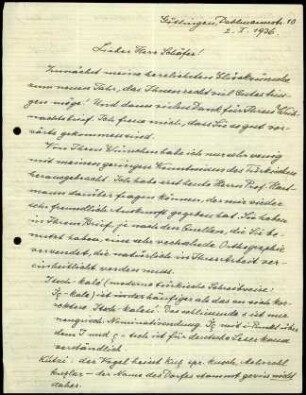 Göttingen, Dahlmannstr. 10
2. I. 1936
Lieber Herr Schäfer!
Zunächst meine herzlichsten Glückwünsche
zum neuen Jahr, das Ihnen recht viel Gutes brin-
gen möge! Und dann vielen Dank für Ihren Weih-
nachtsbrief. Ich freue mich, dass Sie so gut vor-
wärts gekommen sind.
Von Ihren Wünschen habe ich nur sehr wenig
mit meinen geringen Kenntnissen des Türkischen
herausgebracht. Ich habe erst heute Herrn Prof.
mann darüber fragen können, der mir wieder
sehr freundlich Auskunft gegeben hat. Sie haben
in Ihrem Brief je nach den Quellen, die Sie be-
nutzt haben, eine sehr verschiedene Orthographie
verwendet, die natürlich in Ihrer Arbeit ver-
einheitlicht werden muss.
Itsch-kale (moderne türkische Schreibweise:
Iç-kale) ist viel häufiger als das an sich kor-
rektere Itsch-kalesi. Das schliessende s ist nur
Nominativendung. Iç mit i-Punkt über
dem I und ç = tsch ist für deutsche Leser kaum
verständlich
der Vogel heisst Kuş spr. kusch, Mehrzahl
kuşlar - der Name des Dorfes stammt gewiss nicht
daher.